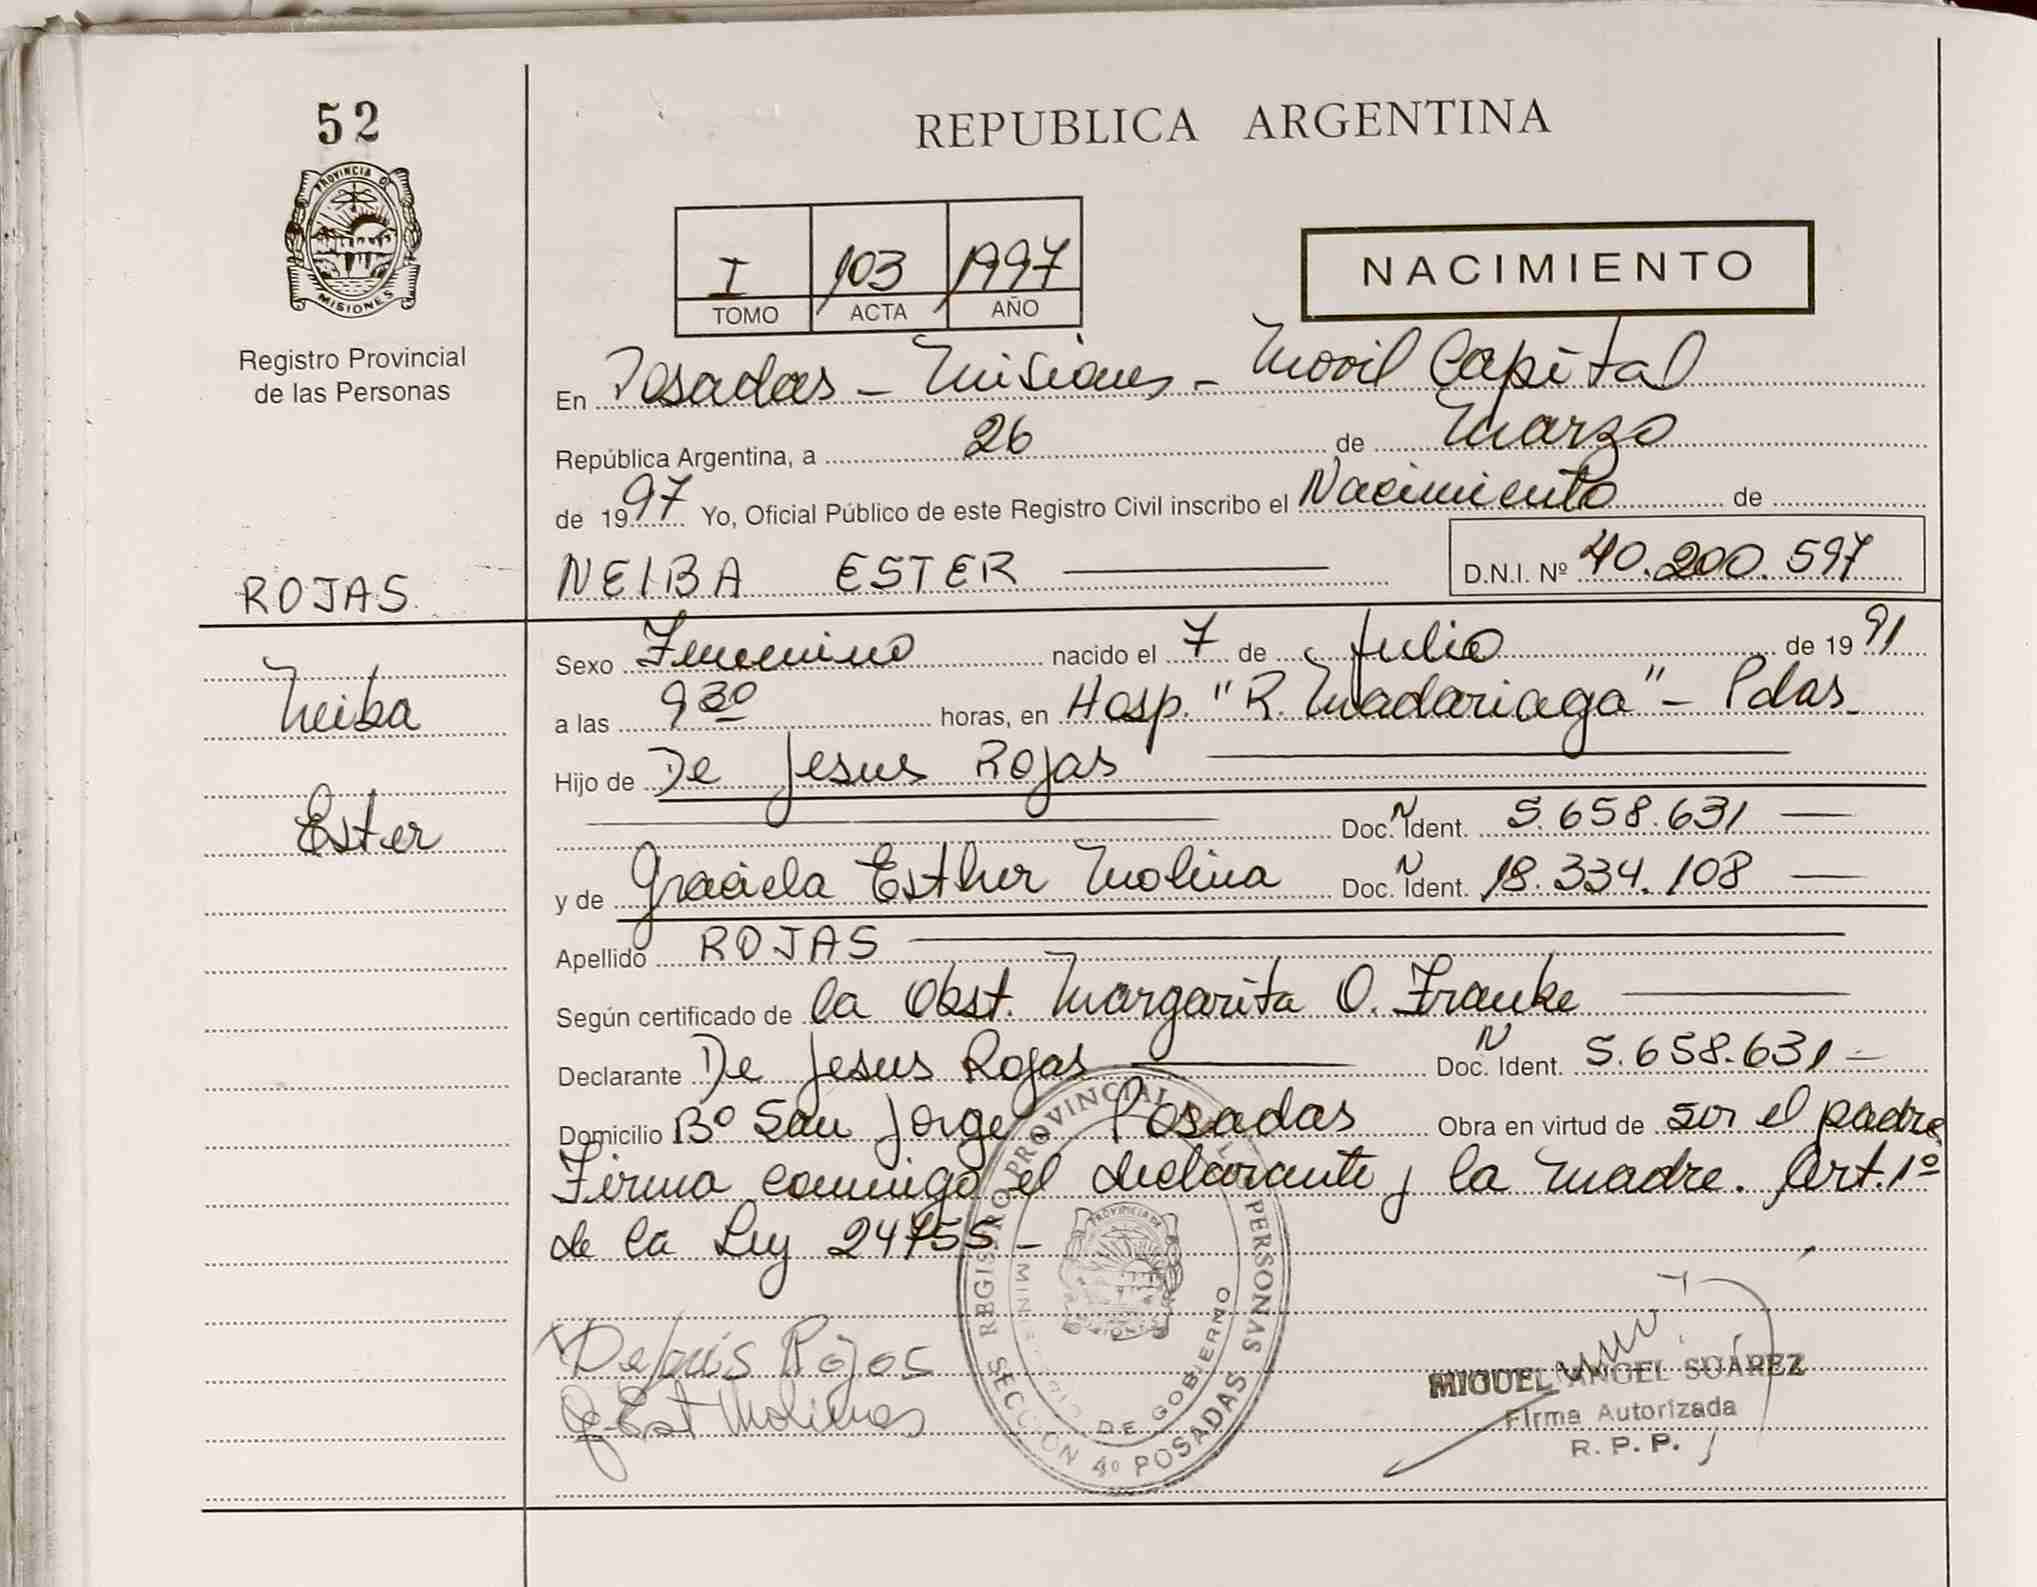 52
PROVINCIA D
MISIONES
Registro Provincial
de las Personas
REPUBLICA ARGENTINA
I 103 1997
TOMO ACTA AÑO
NACIMIENTO
En Posadas - Misiones - Movil Capital
República Argentina, a 26 de Marzo
de 1997 Yo, Oficial Público de este Registro Civil inscribo el Nacimiento de
ROJAS NEIBA ESTER D.N.I. Nº 40.200.597
Sexo Femenino nacido el 7 de Julio de 1991
Neiba
a las 9 30 horas, en Hosp. "R. Madariaga" - Pdas -
Hijo de De Jesus Rojas
Ester
Doc. N Ident. 5.658.631
y de Graciela Esther Molina Doc. N Ident. 18.334.108
Apellido ROJAS
Según certificado de la Obst. Margarita O. Franke
Declarante De Jesus Rojas Doc. N Ident. 5.658.631 -
Domicilio Bº San Jorge Posadas Obra en virtud de ser el padre
Firma conmigo el declarante y la madre. Art. 1º
de la Ley 24755 -
REGISTRO PROVINCIAL PERSONAS
PROVINCIA DE
MISIONES
DE GOBIERNO
SECCION 4º POSADAS
De Jesús Rojas
G. Est Molinas
MIGUEL ANGEL SUÁREZ
Firma Autorizada
R. P. P.